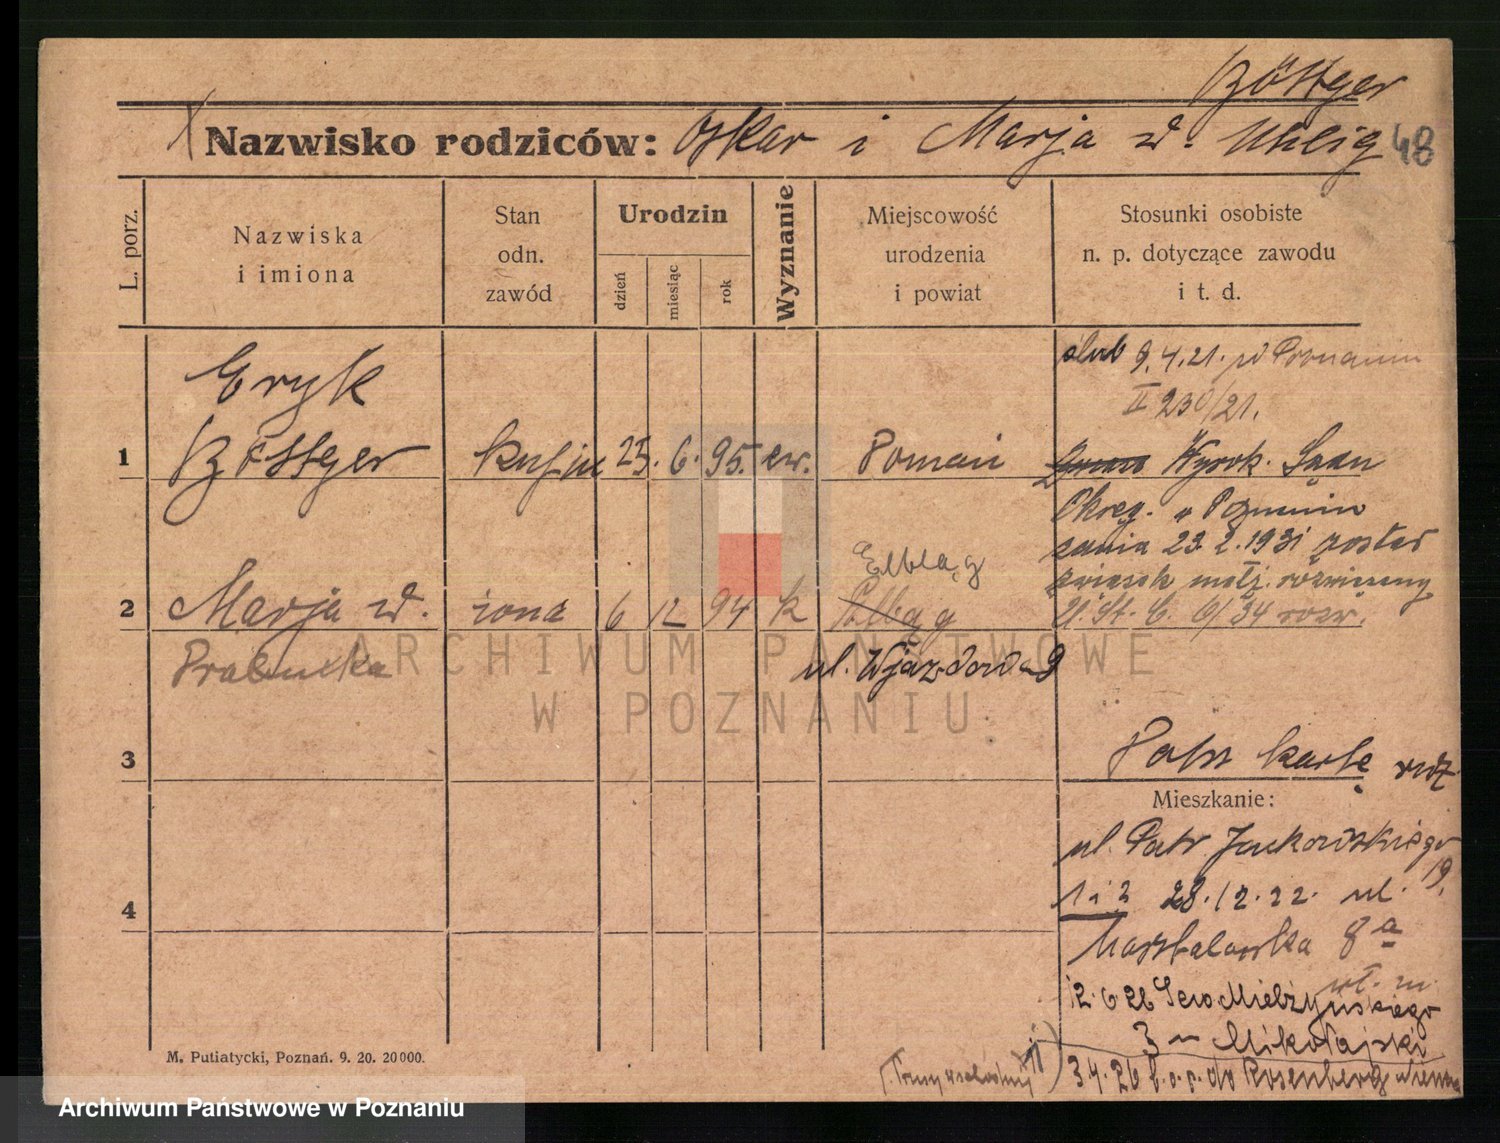 Böttger
Nazwisko rodziców: Oskar i Marja z d. Uhlig 48
L. porz.
Nazwiska
i imiona
Stan
odn.
zawód
Urodzin
dzień
miesiąc
rok
Wyznanie
Miejscowość
urodzenia
i powiat
Stosunki osobiste
n. p. dotyczące zawodu
i t. d.
ślub 9.4.21. w Poznaniu
II 230/21.
Eryk
1 Böttger kupiec 25. 6. 95. ew. Poznań
Wyrok. Sądu
Okręg. w Poznaniu
z dnia 23.2.1931 został
związek małż. rozwiązany
U.St.C. 6/34 rozw.
Elbląg
2 Marja z d. żona 6 12 94 k Elbląg
Prabucka
ul. Wjazdowa 9
ARCHIWUM PAŃSTWOWE
W POZNANIU
3
Patrz kartę
Mieszkanie:
ul. Patr. Jackowskiego
19.
1 i 2 28.12.22. ul.
Masztalarska 8a
12.6.26 Sew. Mielżyńskiego
3 Mikołajski
3.4.26 Rosenberg
4
M. Putiatycki, Poznań. 9. 20. 20000.
Archiwum Państwowe w Poznaniu